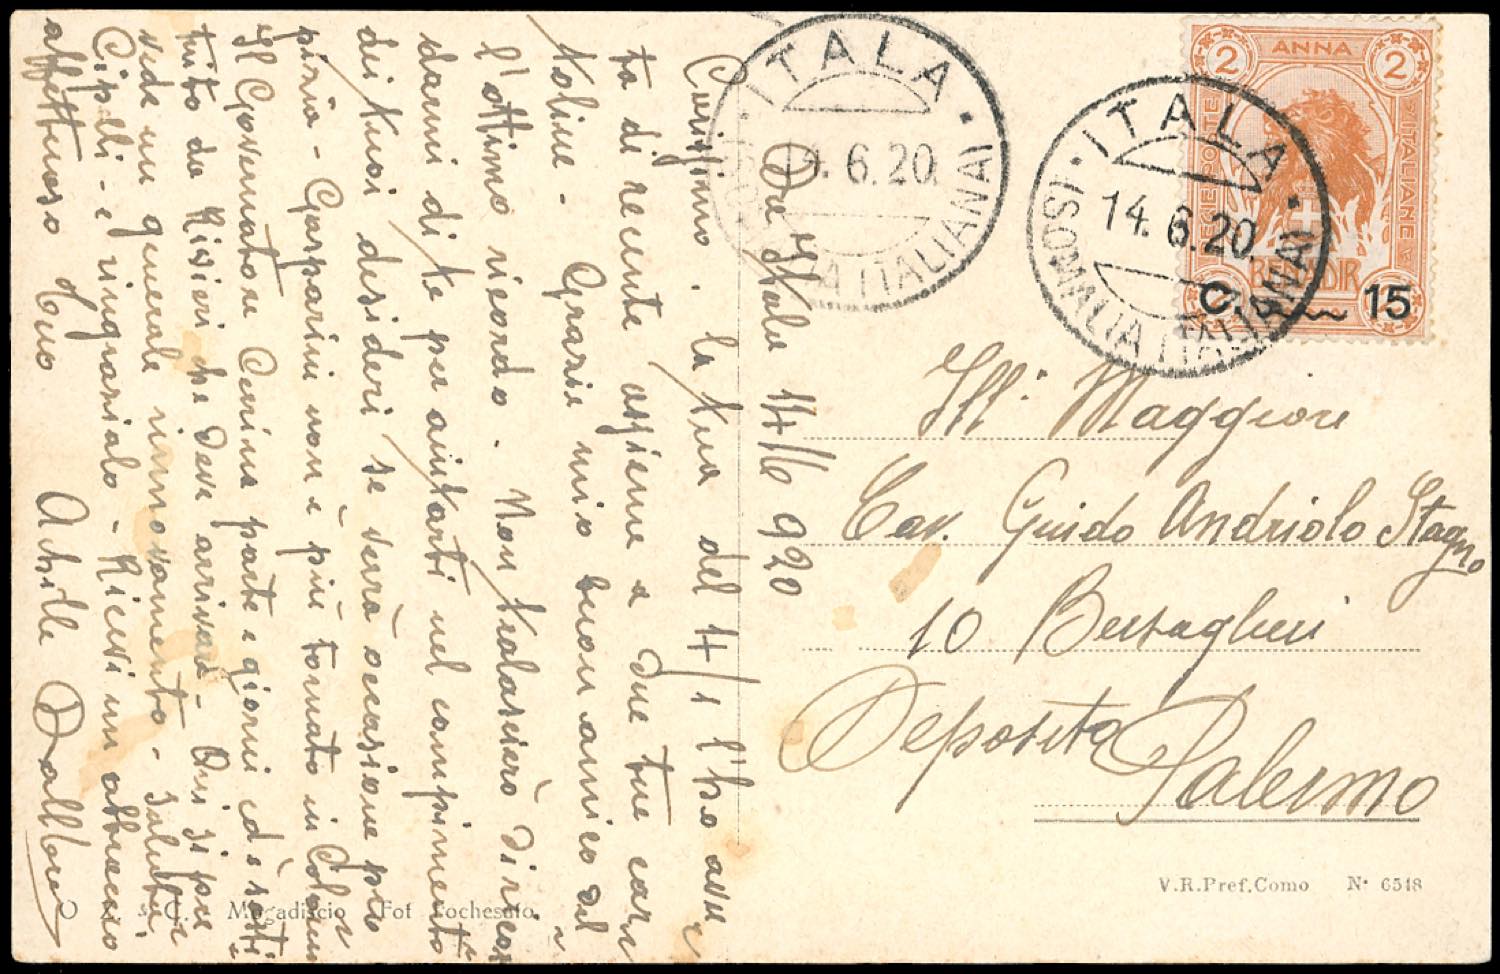 ITALA
14.6.20.
(SOMALIA ITALIANA)
ITALA
14.6.20.
(SOMALIA ITALIANA)
2 ANNA 2
POSTE ITALIANE
BENADIR
C. 15
Ill. Maggiore
Cav. Guido Andriolo Stagno
10 Bersaglieri
Deposito Palermo
V.R.Pref.Como N. 6518
Mogadiscio Fot
Da Itala 14/6 920
Carissimo. La tua del 4/1 l'ho avu
ta di recente assieme a due tue car
toline. Grazie mio buon amico del
l'ottimo ricordo. Non tralascierò di ricor
darmi di te per aiutarti nel compimento
dei tuoi desideri se verrà occasione pro
pizia - Gasparini non è più tornato in Colonia
Il Governatore Cerrina parte a giorni ed è sosti
tuito da Riveri che deve arrivare - Qui si pre
vede un generale rinnovamento - Saluta
Cipolli e ringrazialo - Ricevi un abbraccio
affettuoso tuo Achille